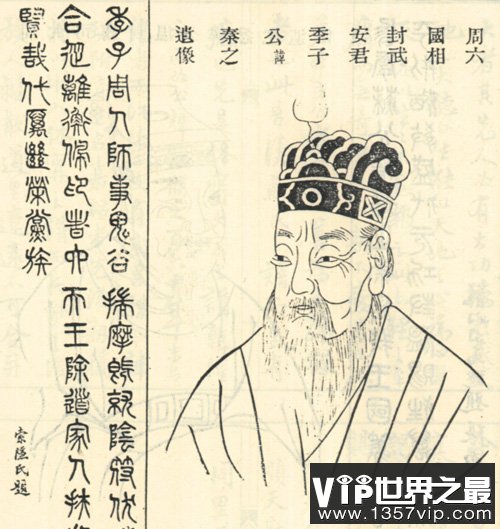 周六
國相
封武
安君
季子
公諱
秦之
遺像
季子周人師事鬼谷揣摩既就陰符伏
合從離衡佩印者六天王除道家人扶
賢哉代厲繼榮黨族
索隱氏題
VIP世界之最
www.1357vip.com